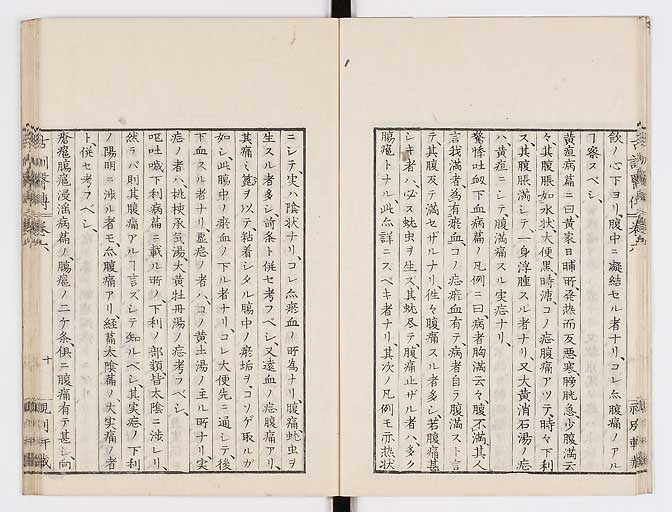 飲ノ心下ヨリ、腹中ニ凝結セル者ナリ、コレ亦腹痛ノアル
ヿ察スベシ、
黄疸病篇ニ曰、黄家日晡所発熱而反悪寒、膀胱急、少腹満云
々、其腹脹如水状、大便黒、時溏、コノ症腹痛アツテ、時々下利
ス、其腹脹満シテ一身浮腫スル者ナリ、又大黄消石湯ノ症
ハ、黄疸ニシテ、腹満痛スル実症ナリ、
驚悸吐衂下血病篇ノ凡例ニ曰、病者胸満云々、腹不満其人
言我満者、為有瘀血、コノ症瘀血有テ病者自ラ腹満スト言
テ其腹反テ満セザルナリ、往々腹痛スル者多シ、若腹痛甚
シキ者ハ、必ス蚘虫ヲ生ズ、其蚘尽テ腹痛止ザル者ハ、多ク
腸癰トナル、此亦詳ニスベキ者ナリ、其次ノ凡例モ亦熱状
ニシテ実ハ陰状ナリ、コレ亦瘀血ノ所為ナリ、腹痛蚘虫ヲ
生スル者多シ、前条ト併セ考フベシ、又遠血ノ症腹痛アリ、
其痛ミ篦ヲ以テ、粘着シタル腸中ノ瘀垢ヲ、コソゲ取ルガ
如シ、此腸中ノ瘀血ノ下ル者ナリ、コレ大便先ニ通シテ後
下血スル者ナリ、虚症ノ者ハ、コノ黄土湯ノ主ル所ナリ、実
症ノ者ハ、桃核承気湯大黄牡丹湯ノ症考フベシ、
嘔吐噦下利病篇ニ載ル所ノ、下利ノ部類皆太陰ニ渉レリ、
然ラバ則其腹痛アルヿ言ズシテ知ルベシ、其実症ノ下利
ノ陽明ニ渉ル者モ、亦腹痛アリ、経篇太陰篇ノ、大実痛ノ者
ト、併セ考フベシ、
瘡癰腸癰浸淫病篇ノ、腸癰ノ二ケ条、俱ニ腹痛有テ甚シ、向